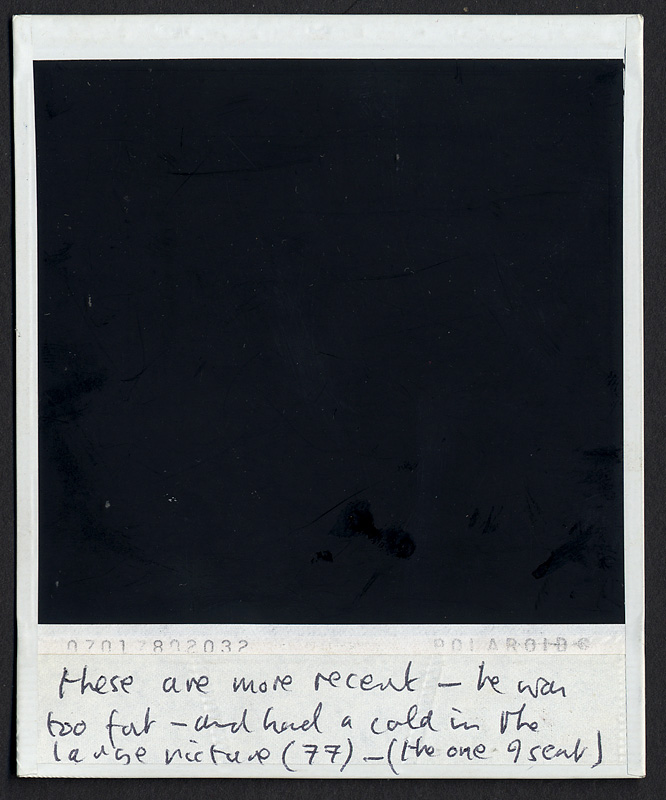 07017802032 POLAROID®
these are more recent — he was
too fat — and had a cold in the
large picture (77) — (the one I sent)